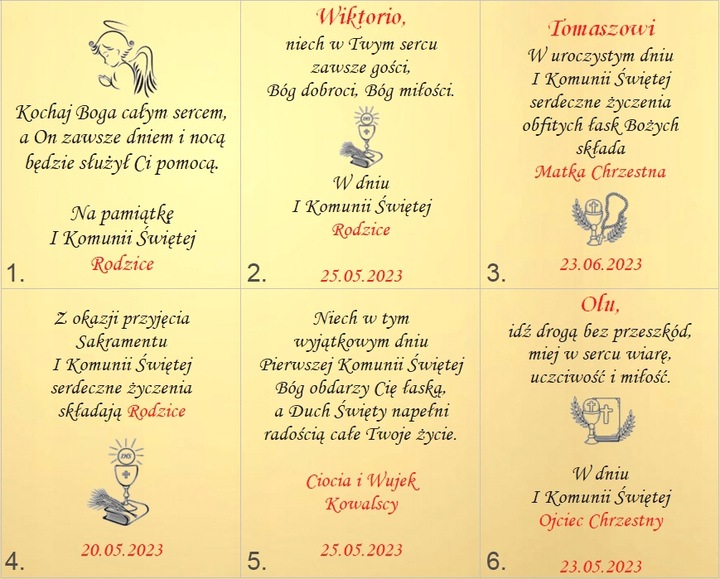 Kochaj Boga całym sercem,
a On zawsze dniem i nocą
będzie służył Ci pomocą.
Na pamiątkę
I Komunii Świętej
Rodzice
1.
Wiktorio,
niech w Twym sercu
zawsze gości,
Bóg dobroci, Bóg miłości.
IHS
W dniu
I Komunii Świętej
Rodzice
25.05.2023
2.
Tomaszowi
W uroczystym dniu
I Komunii Świętej
serdeczne życzenia
obfitych łask Bożych
składa
Matka Chrzestna
23.06.2023
3.
Z okazji przyjęcia
Sakramentu
I Komunii Świętej
serdeczne życzenia
składają Rodzice
IHS
20.05.2023
4.
Niech w tym
wyjątkowym dniu
Pierwszej Komunii Świętej
Bóg obdarzy Cię łaską,
a Duch Święty napełni
radością całe Twoje życie.
Ciocia i Wujek
Kowalscy
25.05.2023
5.
Olu,
idź drogą bez przeszkód,
miej w sercu wiarę,
uczciwość i miłość.
W dniu
I Komunii Świętej
Ojciec Chrzestny
23.05.2023
6.